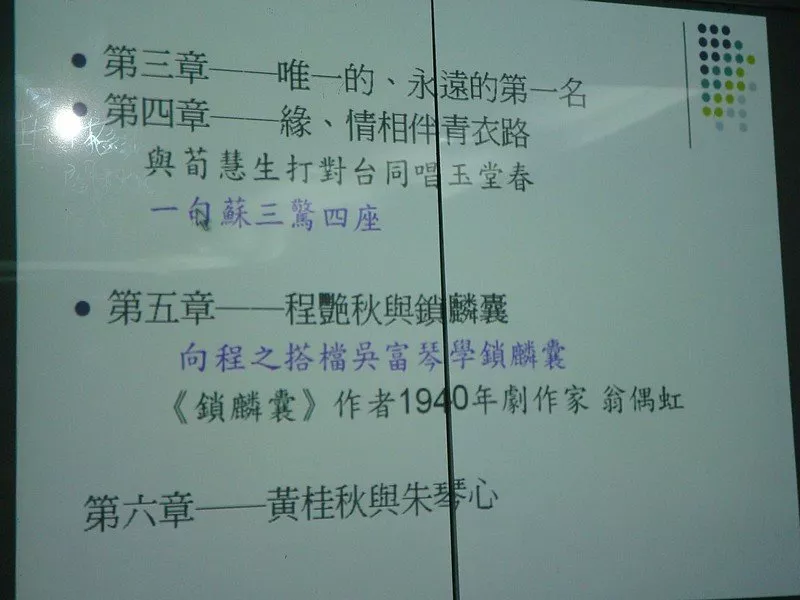 第三章——唯一的、永遠的第一名
第四章——緣、情相伴青衣路
與荀慧生打對台同唱玉堂春
一句蘇三驚四座
第五章——程艷秋與鎖麟囊
向程之搭檔吳富琴學鎖麟囊
《鎖麟囊》作者1940年劇作家 翁偶虹
第六章——黃桂秋與朱琴心